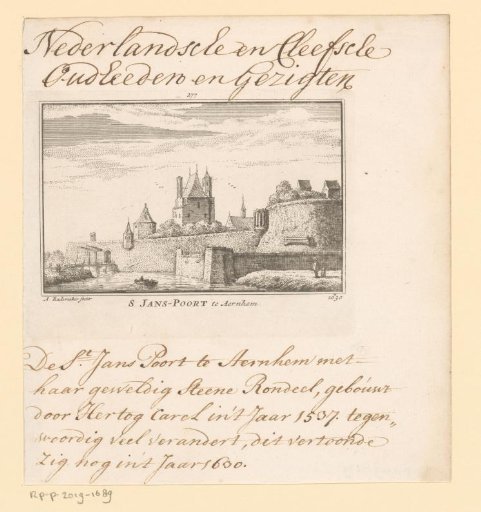 Nederlandsche en Cleefsche
Oudheeden en Gezigten
277
A. Rademaker fecit
S. JANS-POORT te Aernhem
1630
De St. Jans Poort te Aernhem met
haar geweldig steene Rondeel, gebouwt
door Hertog Carel in't Jaar 1537. tegen„
woordig veel verandert, dit vertoonde
zig nog in't Jaar 1630.
RP-P-2019-1689